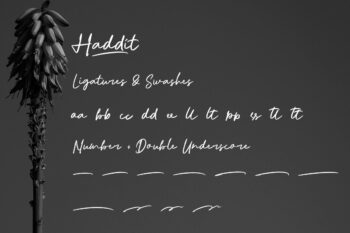 Haddit
Ligatures & Swashes
aa bb cc dd ee ll lt pp ss tl tt
Number + Double Underscore